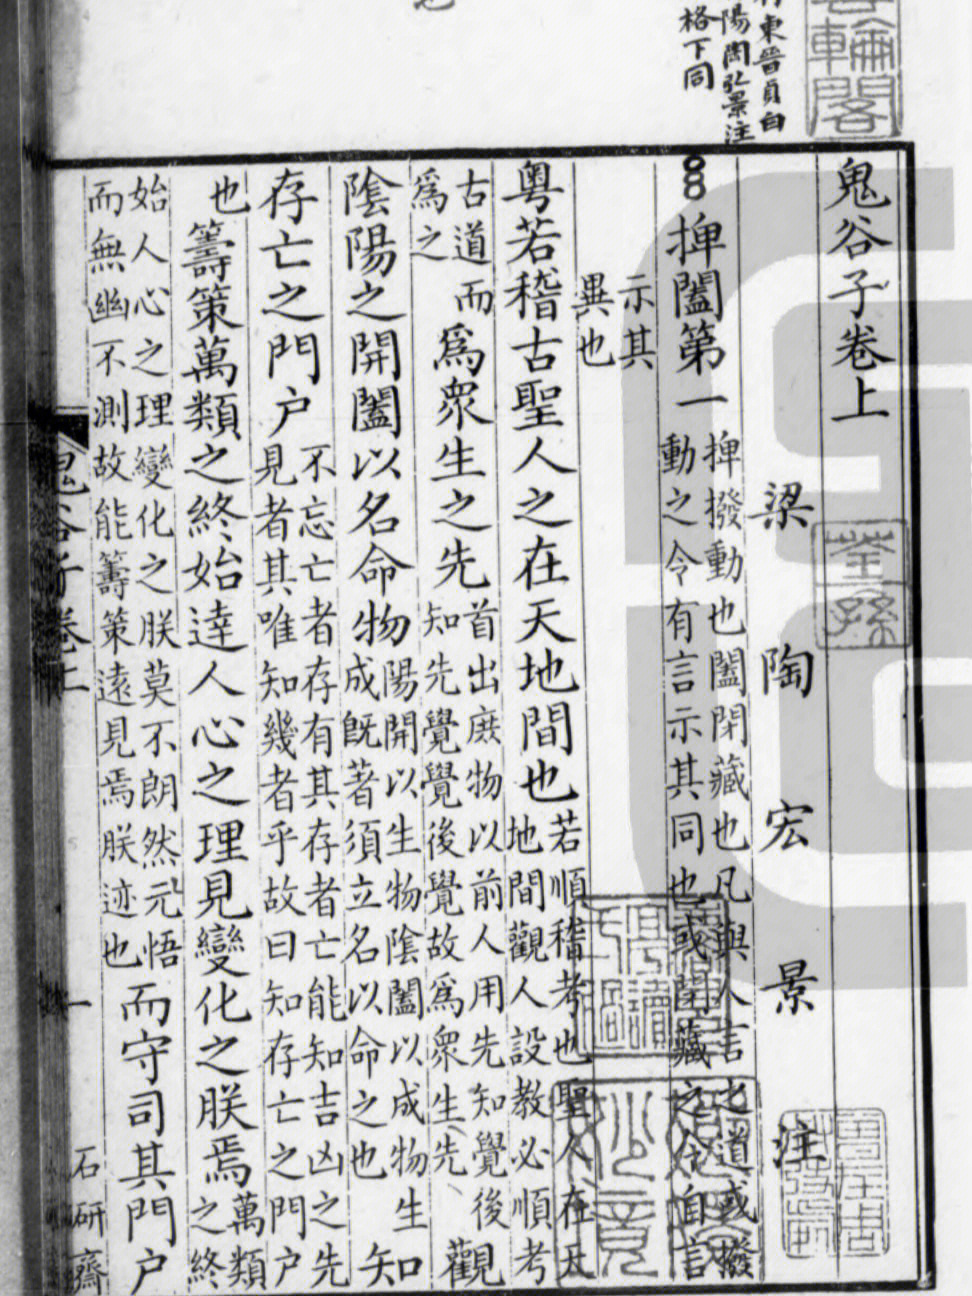 東晉員白
陽陶弘景注
格下同
鬼谷子卷上
梁 陶 宏 景 注
捭闔第一
捭撥動也闔閉藏也凡與人言之道或撥
動之令有言示其同也或閉藏之令自言
示其
異也
粤若稽古聖人之在天地間也
若順稽考也聖人在天
地間觀人設教必順考
古道而
爲之
爲衆生之先
首出庶物以前人用先知覺後
知先覺覺後覺故爲衆生先
觀
陰陽之開闔以名命物
陽開以生物陰闔以成物生
成既著須立名以命之也
知
存亡之門户
不忘亡者存有其存者亡能知吉凶之先
見者其唯知幾者乎故曰知存亡之門户
也
籌策萬類之終始達人心之理見變化之朕焉
萬類
之終
始人心之理變化之朕莫不朗然元悟
而無幽不測故能籌策遠見焉朕迹也
而守司其門户
鬼谷子卷上
一
石研齋